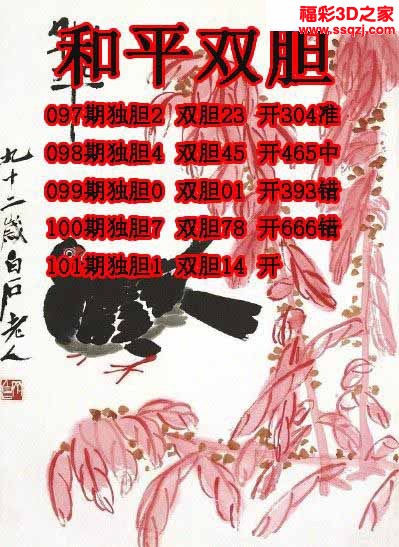 福彩3D之家
www.ssqzj.com
和平双胆
097期独胆2 双胆23 开304准
098期独胆4 双胆45 开465中
099期独胆0 双胆01 开393错
100期独胆7 双胆78 开666错
101期独胆1 双胆14 开
九十二歲白石老人